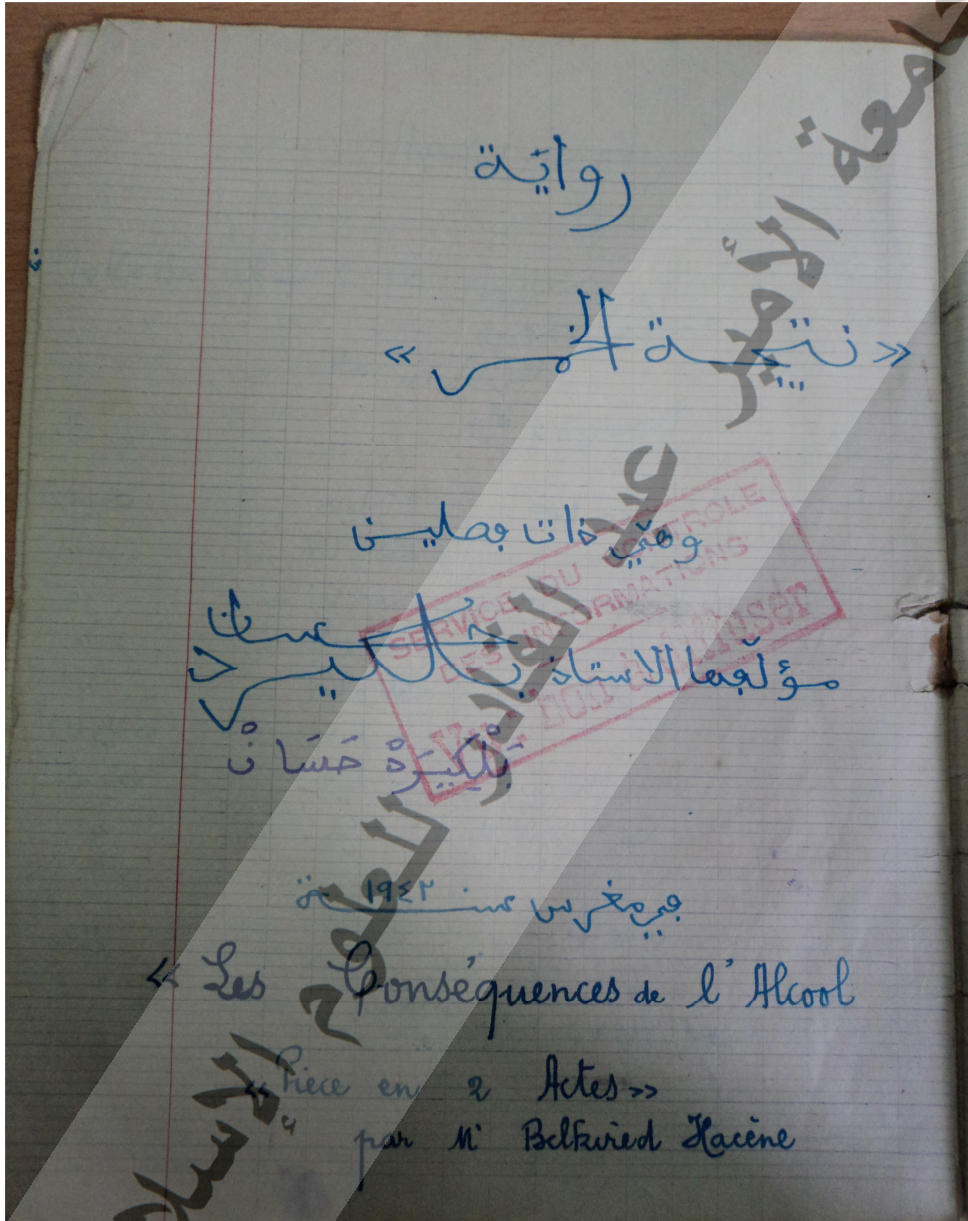 رواية
«نتيجة الخمر»
وهي ذات فصلين
مؤلفها الاستاذ بالكيرد حسان
بَلْكِيرَدْ حَسَانْ
في مغرس سنة ١٩٤٢
« Les Conséquences de l'Alcool
«Pièce en 2 Actes»
par Mr Belkired Hacène
SERVICE DU CONTROLE
DES INFORMATIONS
جامعة الأمير عبد القادر للعلوم الإسلا